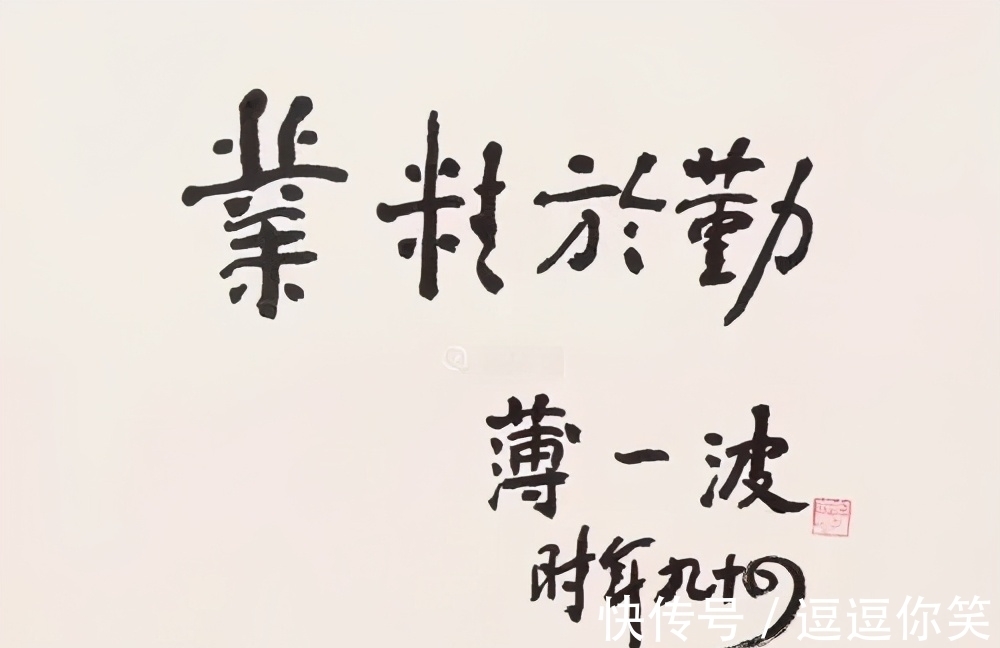 業精於勤
薄一波
时年九十四
快传号 / 逗逗你笑